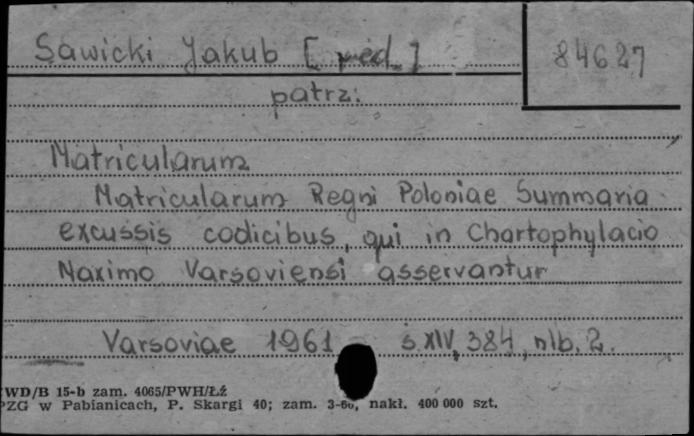 Sawicki Jakub [red.] 84627
patrz:
Matricularum
Matricularum Regni Poloniae Summaria
excussis codicibus, qui in Chartophylacio
Maximo Varsoviensi asservantur
Varsoviae 1961 s. XIV, 384, nlb. 2.
WD/B 15-b zam. 4065/PWH/Łź
PZG w Pabianicach, P. Skargi 40; zam. 3-60, nakł. 400 000 szt.